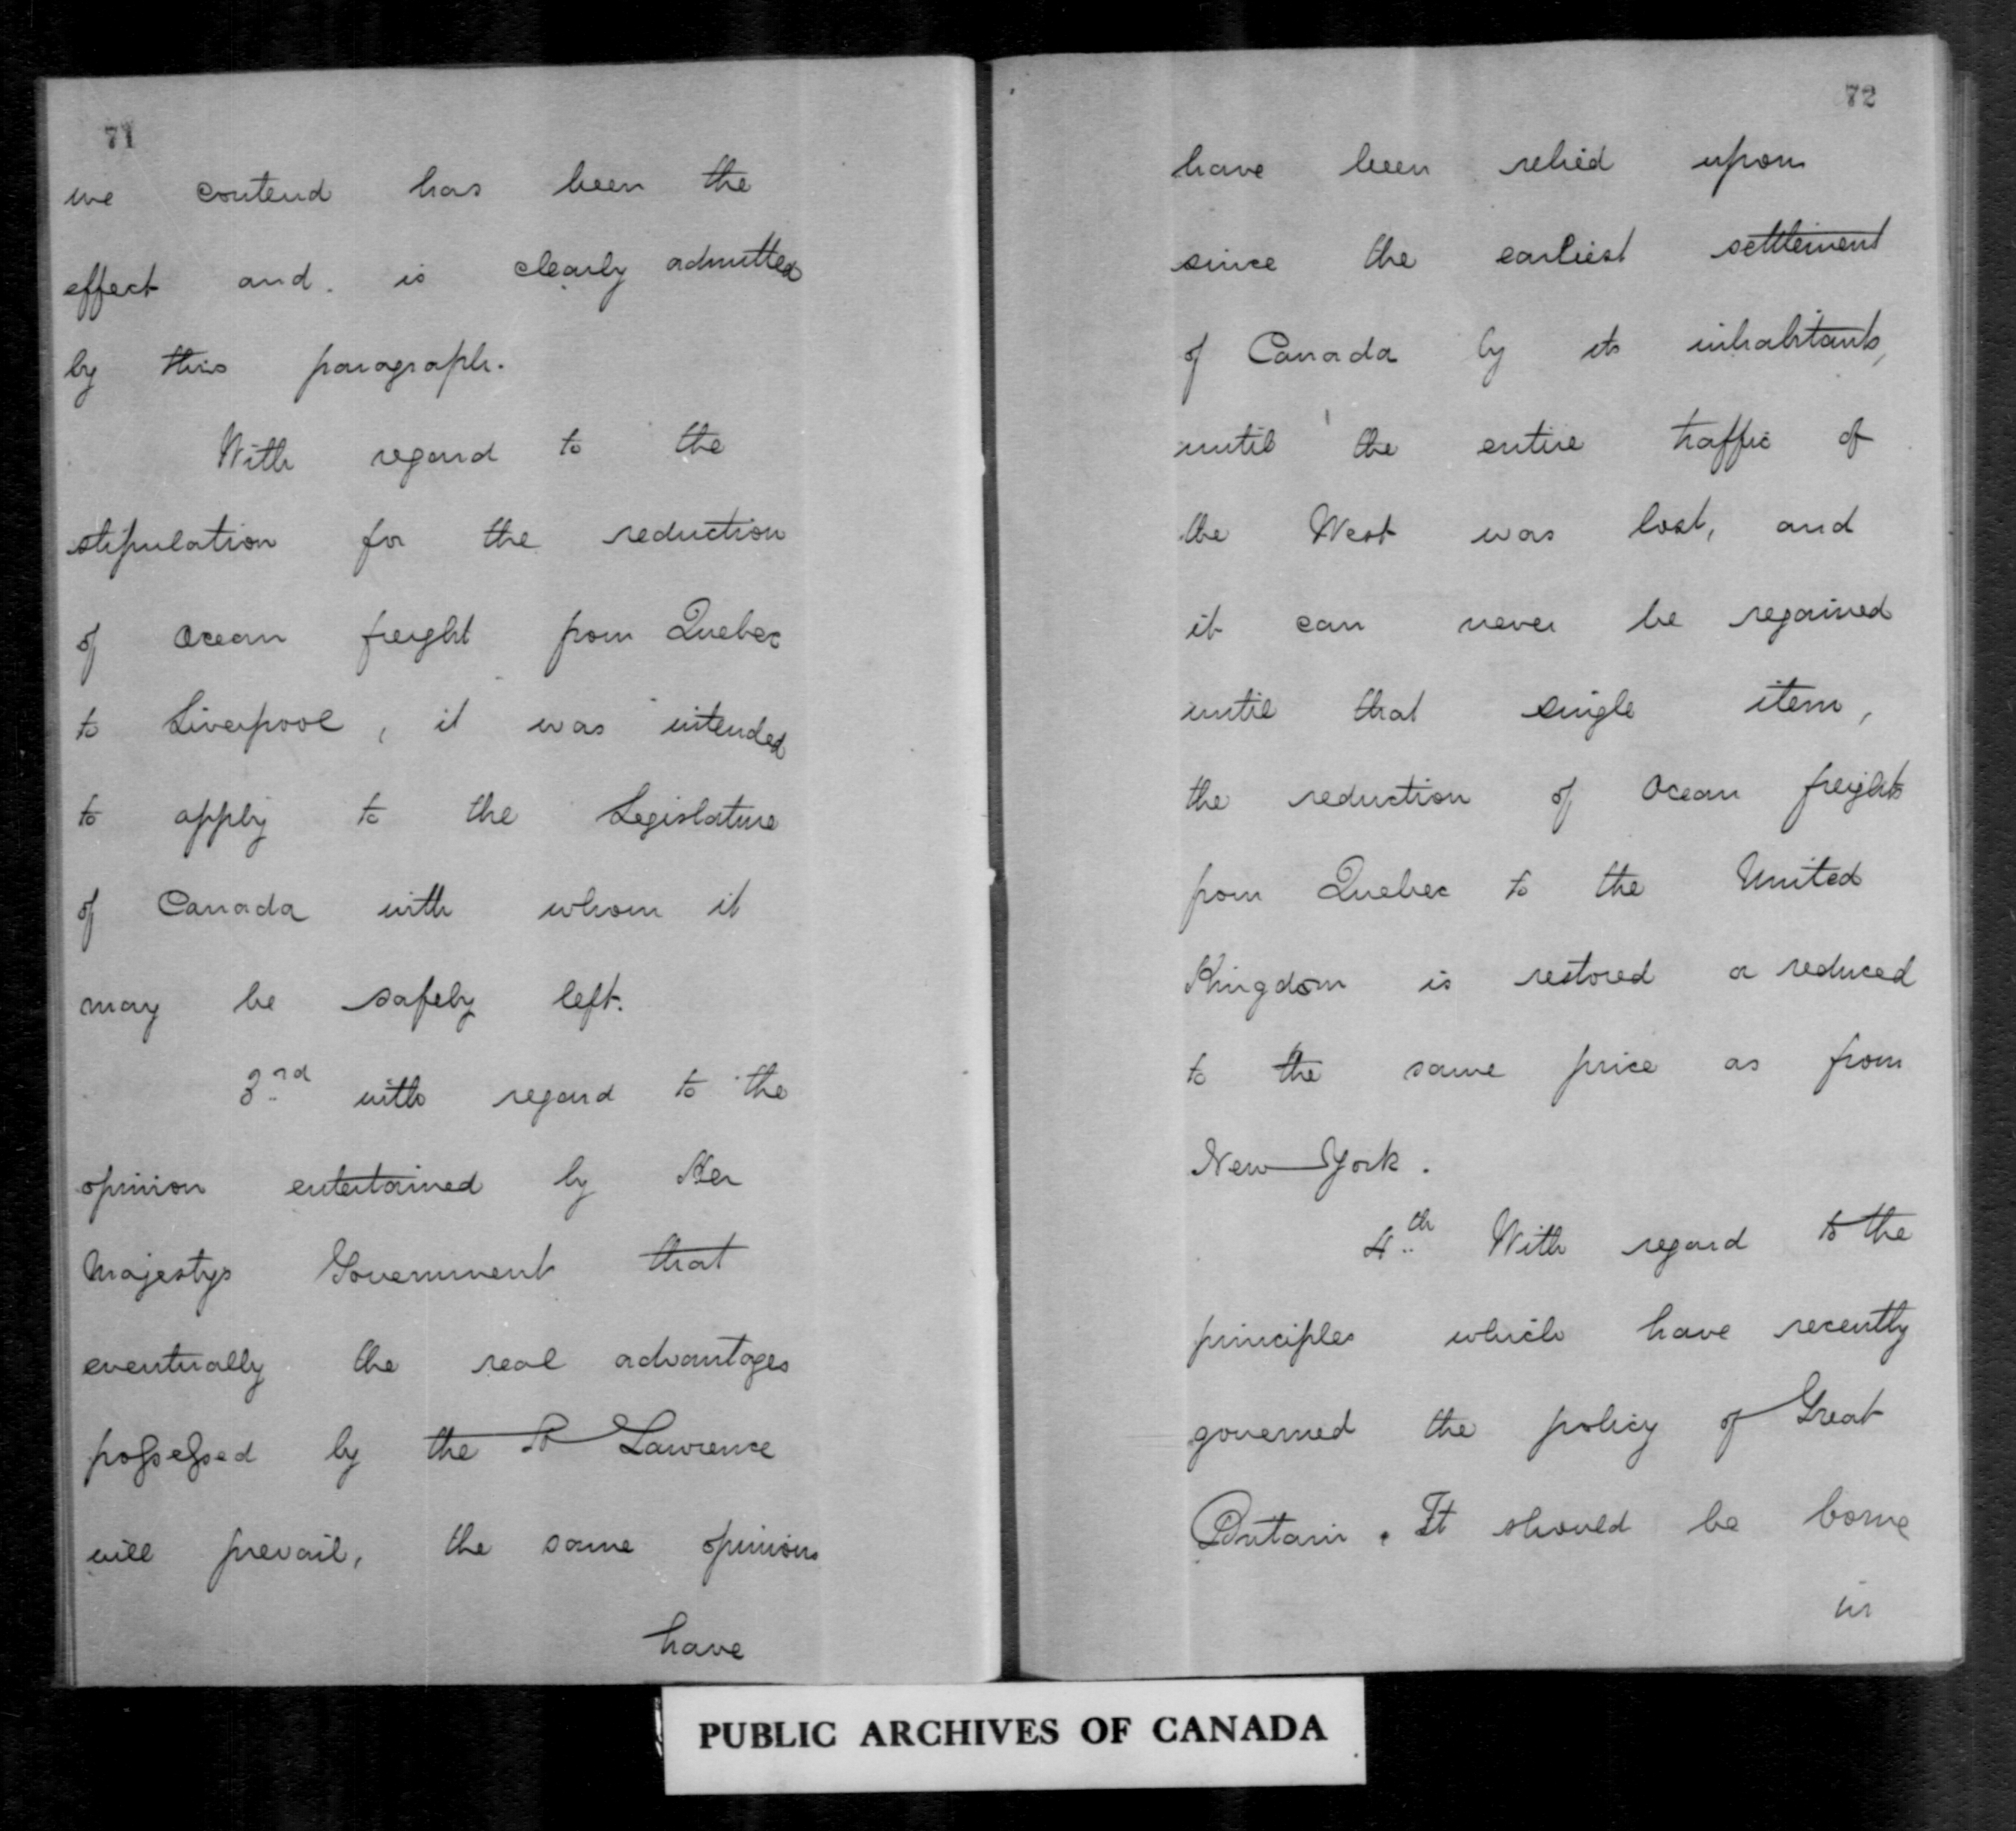 71
we contend has been the
effect and is clearly admitted
by this paragraph.
With regard to the
stipulation for the reduction
of Ocean freight from Quebec
to Liverpool, it was intended
to apply to the Legislature
of Canada with whom it
may be safely left.
3rd with regard to the
opinion entertained by Her
Majestys Government that
eventually the real advantages
possessed by the St Lawrence
will prevail, the same opinions
have
72
have been relied upon
since the earliest settlement
of Canada by its inhabitants,
until the entire traffic of
the West was lost, and
it can never be regained
until that single item,
the reduction of Ocean freights
from Quebec to the United
Kingdom is restored or reduced
to the same price as from
New York.
4th With regard to the
principles which have recently
governed the policy of Great
Britain. It should be borne
in
PUBLIC ARCHIVES OF CANADA